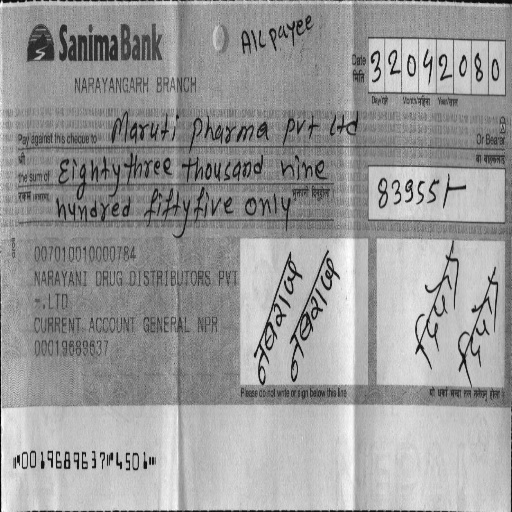 Sanima Bank
A/c payee
NARAYANGARH BRANCH
Date
मिति
3 2 0 4 2 0 8 0
Day/गते Month/महिना Year/साल
Pay against this cheque to Maruti pharma pvt ltd
Or Bearer
श्री
वा वाहकलाई
the sum of Eighty three thousand nine
hundred fifty five only
83955/-
007010010000784
NARAYANI DRUG DISTRIBUTORS PVT
-.LTD
CURRENT ACCOUNT GENERAL NPR
00019689637
नवराज
नवराज
Please do not write or sign below this line
"0019689637" 4501"